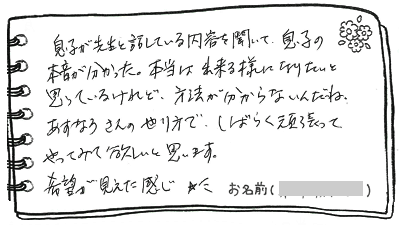 息子が先生と話している内容を聞いて、息子の
本音が分かった。本当は出来る様になりたいと
思っているけれど、方法が分からないんだね、
あすなろさんのやり方で、しばらく頑張って
やってみて欲しいと思います。
希望が見えた感じ
お名前( )